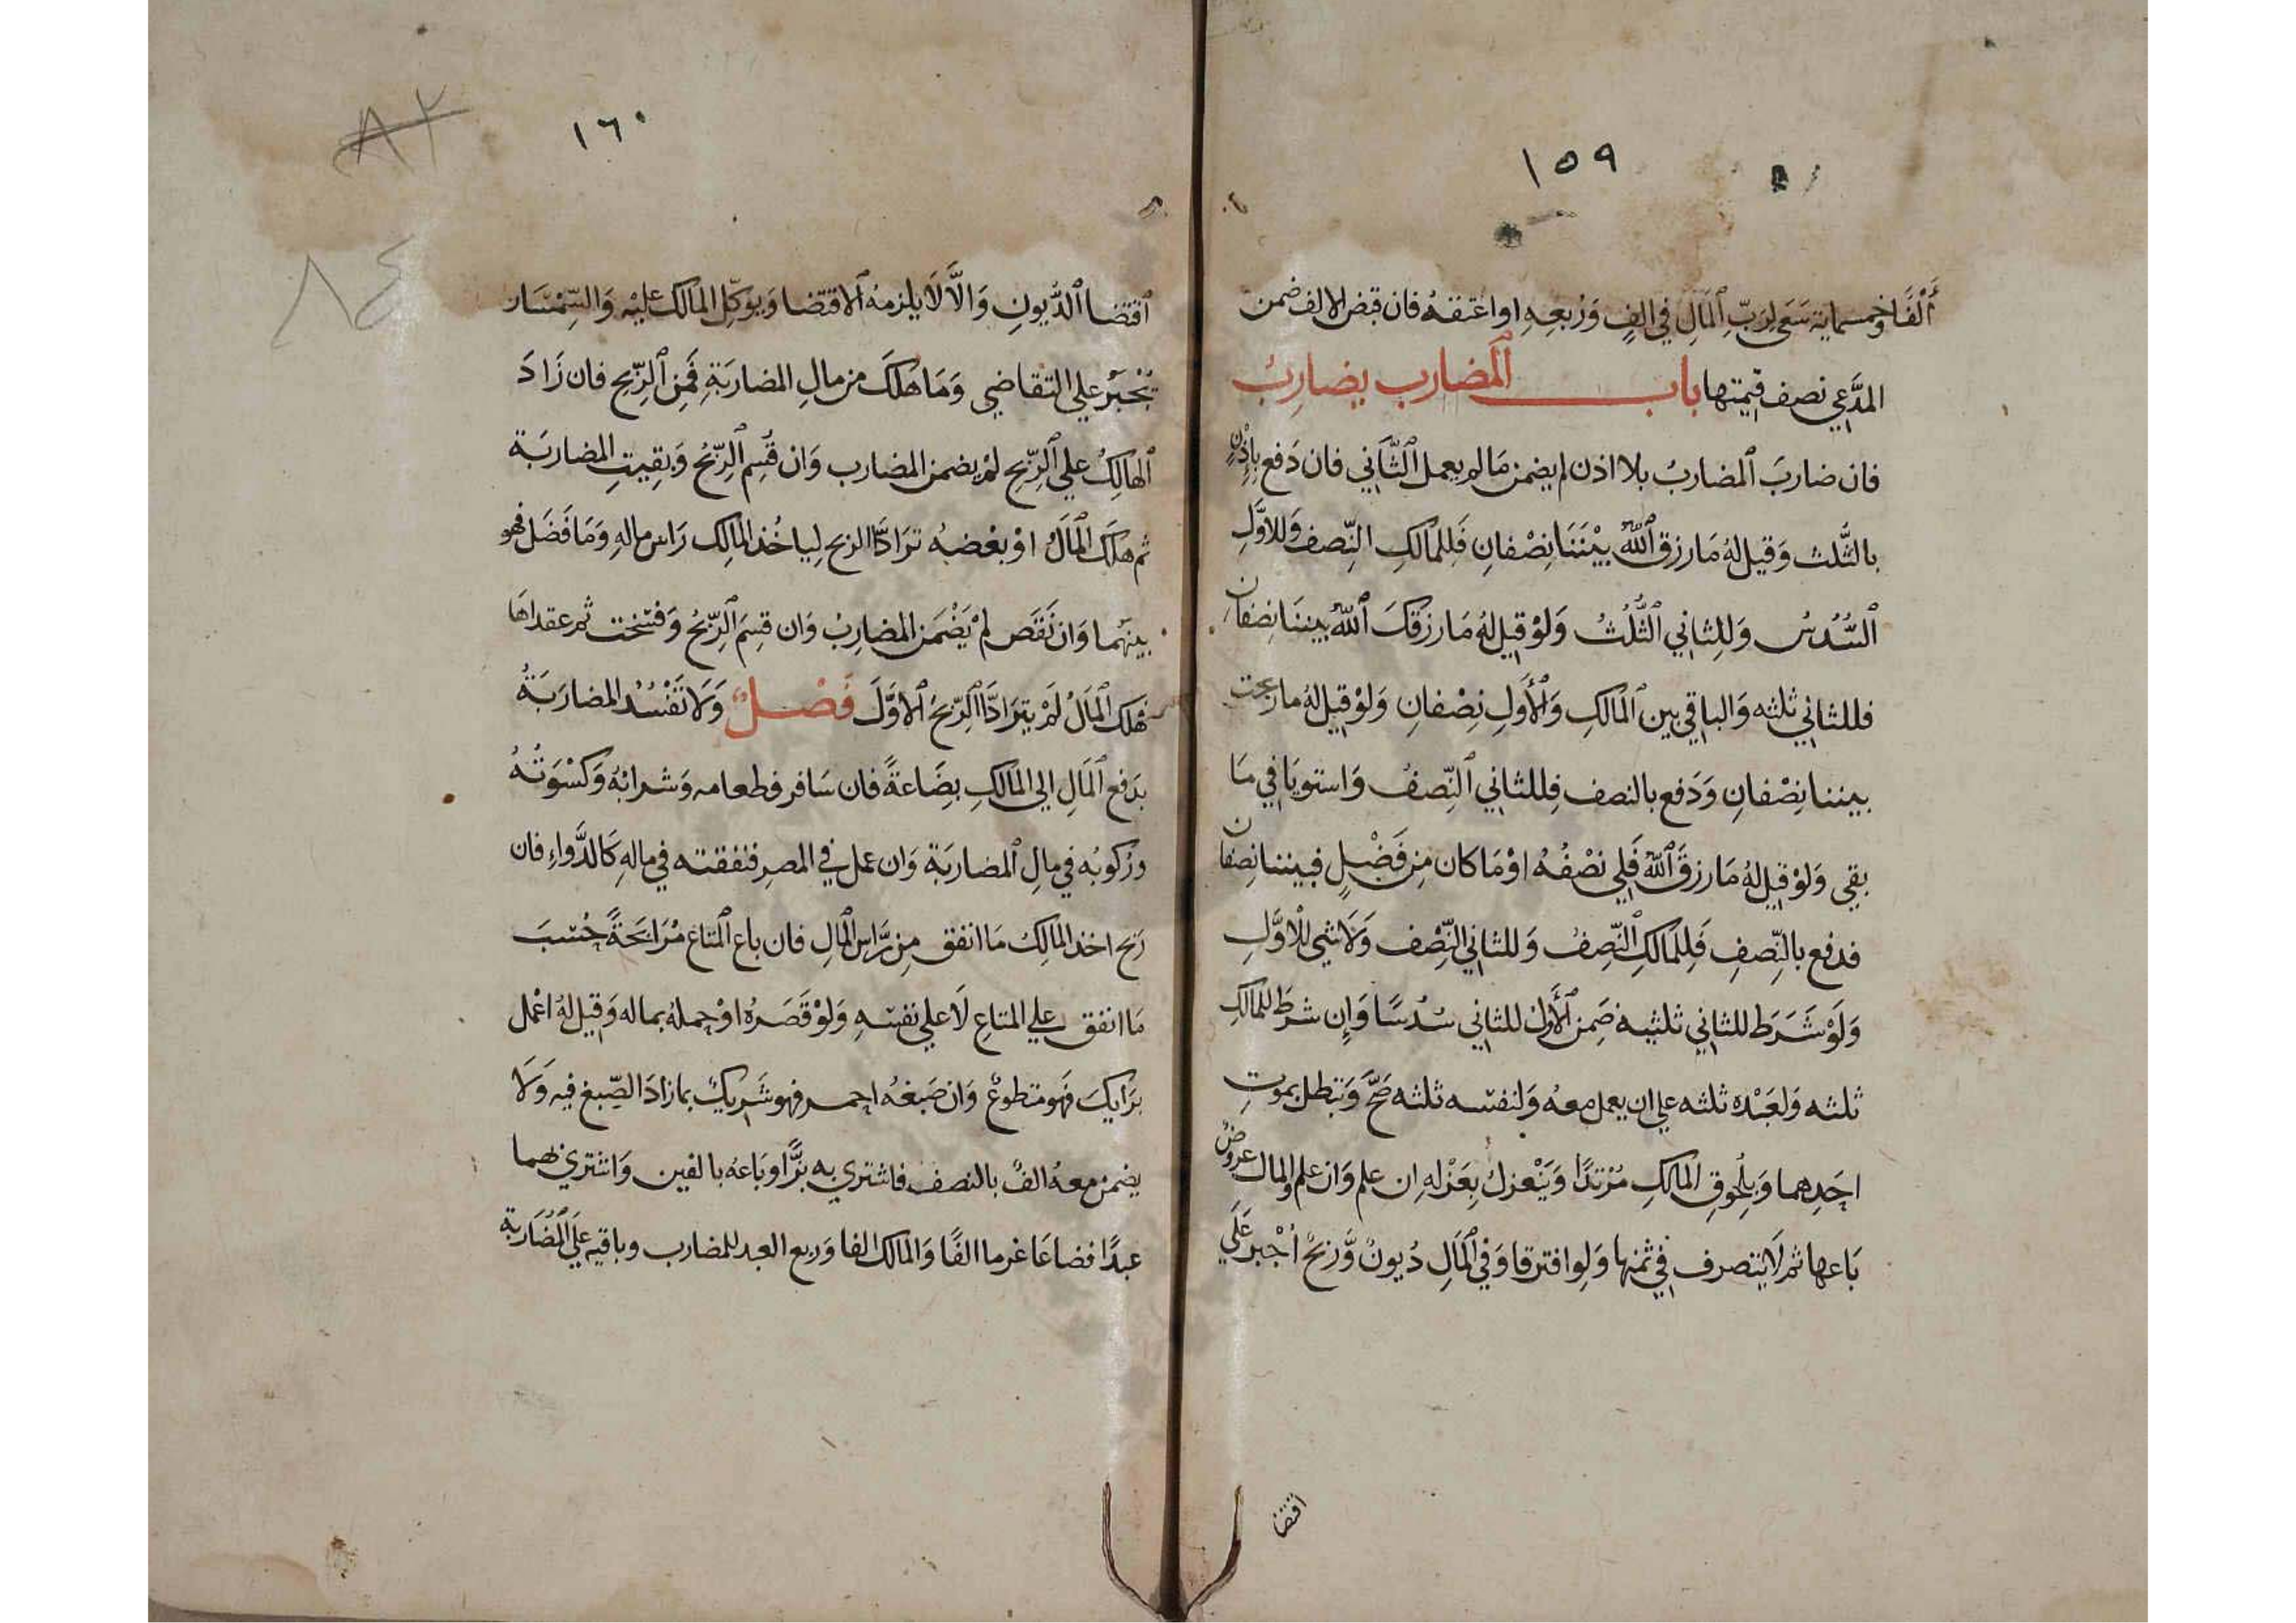 ١٥٩
أَلْفًا وخمسماية سَعَى لِرَبِّ ٱلْمَالِ في الفٍ وَرُبعِهِ او اعتقهُ فان قبض الالف ضمن
المدَّعي نصف قيمتها باب ٱلمضارب يضاربُ
فان ضاربَ ٱلمضاربُ بلا اذن لم يضمن مَا لم يعمل ٱلثَّاني فان دَفع بِإذْنٍ
بالثُّلث وَقيل لهُ مَا رزق ٱللّٰه بيْنَنَا نِصْفانِ فَلِلمالكِ النِّصف وَللاوَّلِ
ٱلسُّدسُ وَلِلثاني ٱلثُّلُثُ وَلوْ قيل لهُ مَا رزقكَ ٱللّٰهُ بيننَا نِصفان
فللثاني ثلثه وَالباقي بين ٱلمَالكِ وَٱلأولِ نِصْفانِ وَلوْ قيل لهُ ما ربحت
بيننا نِصْفانِ وَدَفع بالنصف فللثاني ٱلنِّصفُ وَاستويَا في مَا
بقي وَلوْ قيل لهُ مَا رزقَ ٱللّٰهُ فَلي نصْفُهُ اوْ مَا كان مِن فَضْلٍ فبيننا نِصفان
فدفع بالنِّصفِ فَلِلمَالكِ ٱلنِّصفُ وَللثاني النِّصْف وَلَا شي للْاوَّلِ
وَلَوْ شَرَط للثاني ثلثيه ضَمن ٱلْأَولُ للثاني سُدسًا وَإِن شَرط للمالكِ
ثلثه وَلعَبْده ثلثه علي ان يعمل معهُ وَلنفسه ثلثه صَحَّ وَتبطل بموتِ
احَدِهما وَبِلُحوقِ المَالكِ مُرْتدًا وَيَنْعزلُ بِعَزْلهِ إن علم وَان علم وَالمال عروضٌ
بَاعها ثم لَا يتصرف في ثمنها وَلو افترقا وَفي ٱلمَالِ دُيونٌ وَّربحٌ أُجْبرَ عَلَي
اقتضا
١٦٠
٨٢
٨٤
ٱقتضا ٱلدُّيونِ وَالَّا لَا يلزمهُ ٱلاقتضا وَيوكّل المَالك عليْه وَالسِّمْسَار
يُجْبَرُ علي التقاضي وَمَا هَلكَ من مالِ المضاربَةِ فَمِن ٱلرِّبح فان زَادَ
ٱلهَالِكُ علي ٱلرِّبح لمْ يضمن المضارب وَان قُسِم ٱلرِّبْحُ وَبَقِيتِ المضاربَة
ثم هلَكَ ٱلمَالُ اوْ بعْضهُ ترَادَّا الربح لِياخُذ المالِك رَاس مالهِ وَمَا فَضَل فهو
بينهُما وَان نَقَص لمْ يَضْمَن المضاربُ وَان قسِمَ ٱلرِّبْحُ وَفُسِخت ثم عقداهَا
فهَلك ٱلمَالُ لَمْ يترَادَّا ٱلرِّبحُ ٱلاوَّلَ فَصْلٌ وَلَا تَفْسُد المضاربَةُ
بدَفع ٱلمَالِ الي المَالكِ بِضَاعةً فان سَافر فطعامه وَشرابُهُ وَكسْوَتُهُ
ورُكوبُه في مالِ ٱلمضاربَة وَان عمل في المصرِ فنفقته في مالهِ كَالدَّواءِ فان
رَبح اخذ المالِكُ مَا انفق مِن رَّاس المالِ فان باع ٱلمتاع مُرَابَحَةً حُسِبَ
مَا انفق علي المتاعِ لَا علي نفسه وَلوْ قَصَرهُ اوْ حملهُ بماله وَقيل لهُ اعْمل
برَايكَ فَهو متطوعٌ وَان صَبغهُ احمر فهو شَريكٌ بما زادَ الصِّبغ فيه وَلَا
يضمن معهُ الفٌ بالنصف فاشتري به بزًّا وبَاعهُ بالفين وَاشتري بهما
عبدًا فضاعَا غرما الفًا وَالمالك الفا وَربع العبد للمضارب وباقيه علي ٱلمُضَاربَة